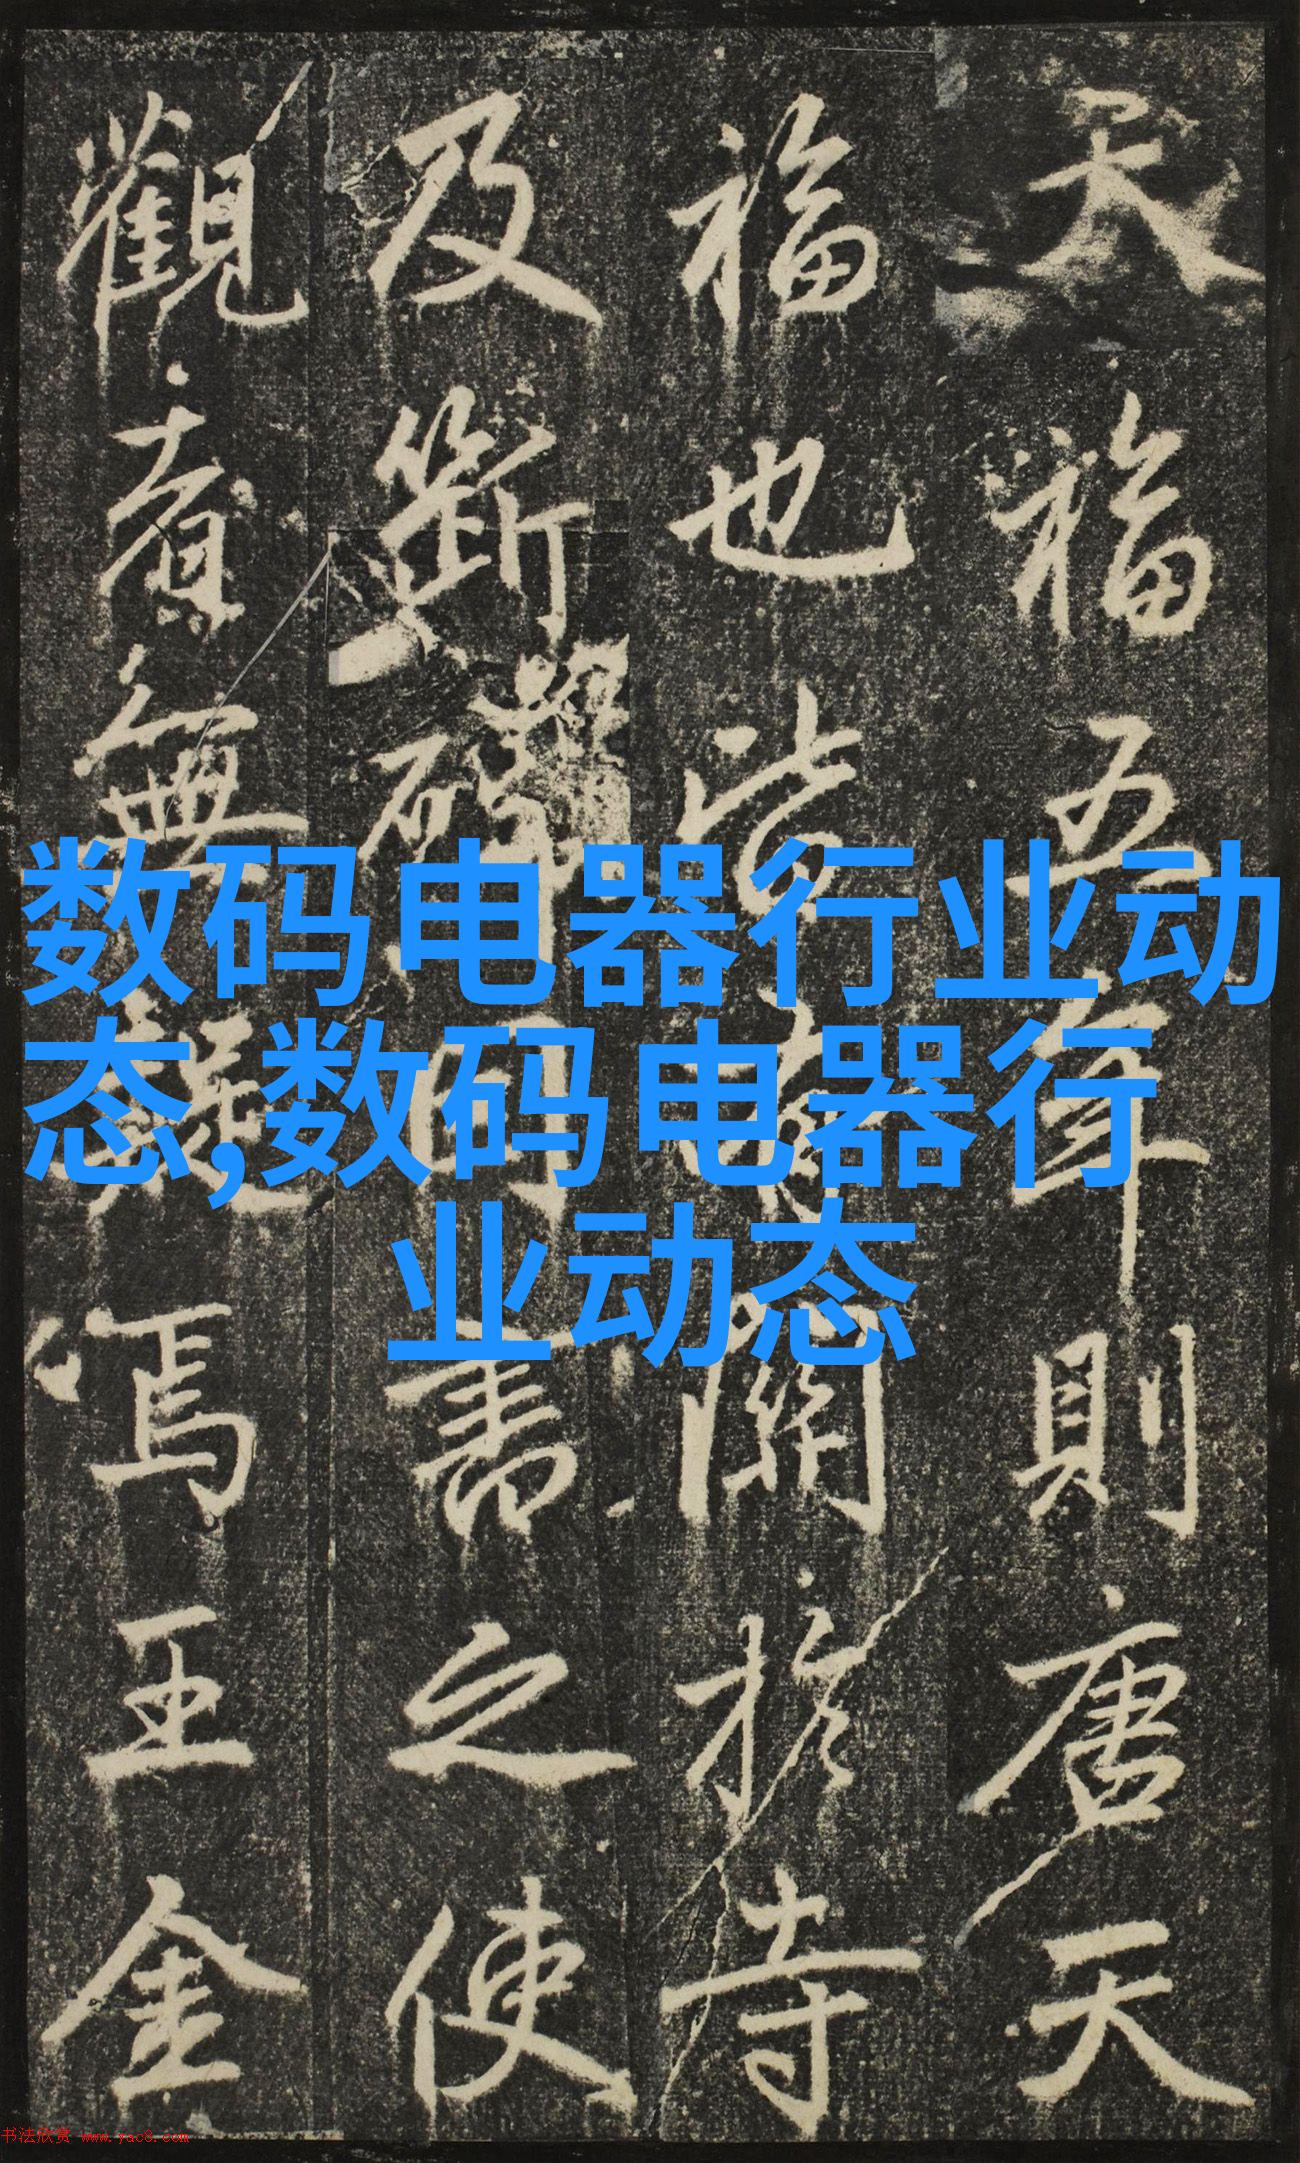 天福五年則唐天
福也皆關於寺
及斷碑書之使
觀者無疑焉王金
数码电器行业动
态,数码电器行
业动态
书法欣赏 www.yac8.com